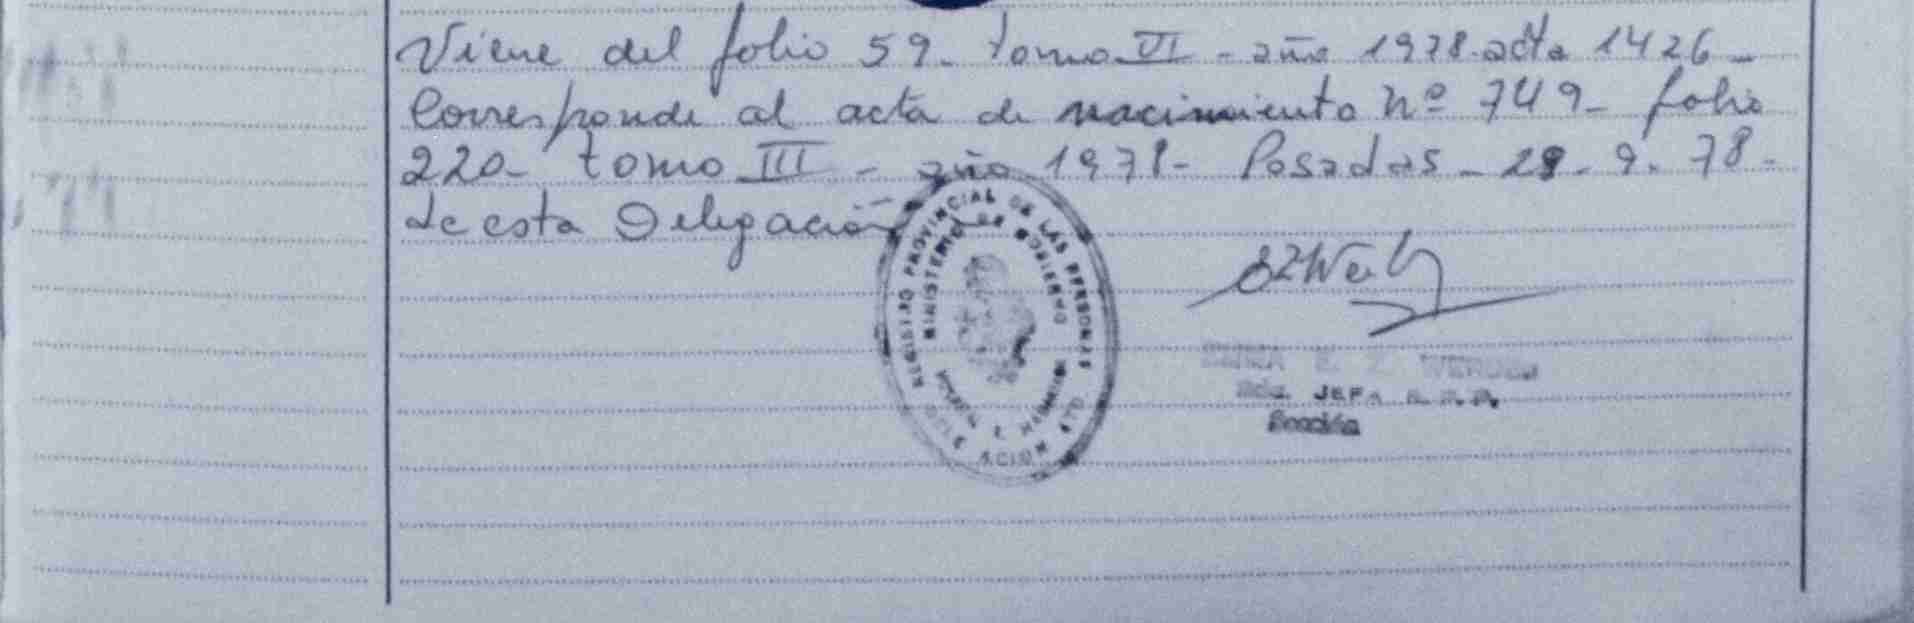 Viene del folio 59- tomo VI - año 1978- acta 1426-
Corresponde al acta de nacimiento Nº 749- folio
220- tomo III - año 1978- Posadas - 29 - 9 - 78-
de esta Delegación
REGISTRO PROVINCIAL DE LAS PERSONAS
MINISTERIO DE GOBIERNO
E. Z.
JEFA